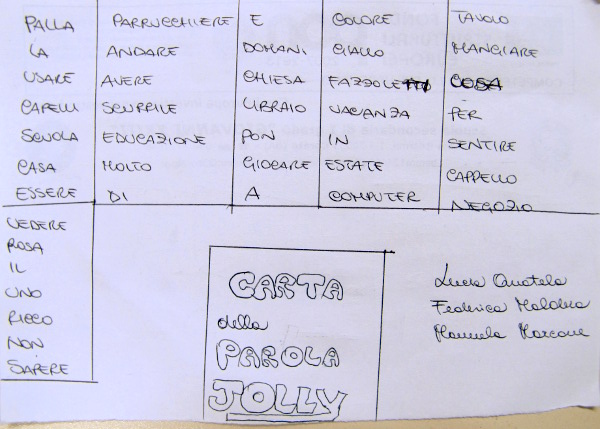 PALLA
LA
USARE
CAPELLI
SCUOLA
CASA
ESSERE
PARRUCCHIERE
ANDARE
AVERE
SCURRILE
EDUCAZIONE
MOLTO
DI
E
DOMANI
CHIESA
LIBRAIO
PON
GIOCARE
A
COLORE
GIALLO
FAZZOLETTO
VACANZA
IN
ESTATE
COMPUTER
TAVOLO
MANGIARE
COSA
PER
SENTIRE
CAPPELLO
NEGOZIO
VEDERE
ROSA
IL
UNO
RICCO
NON
SAPERE
CARTA
della
PAROLA
JOLLY
Lucia
Federica
Manuela Marcone